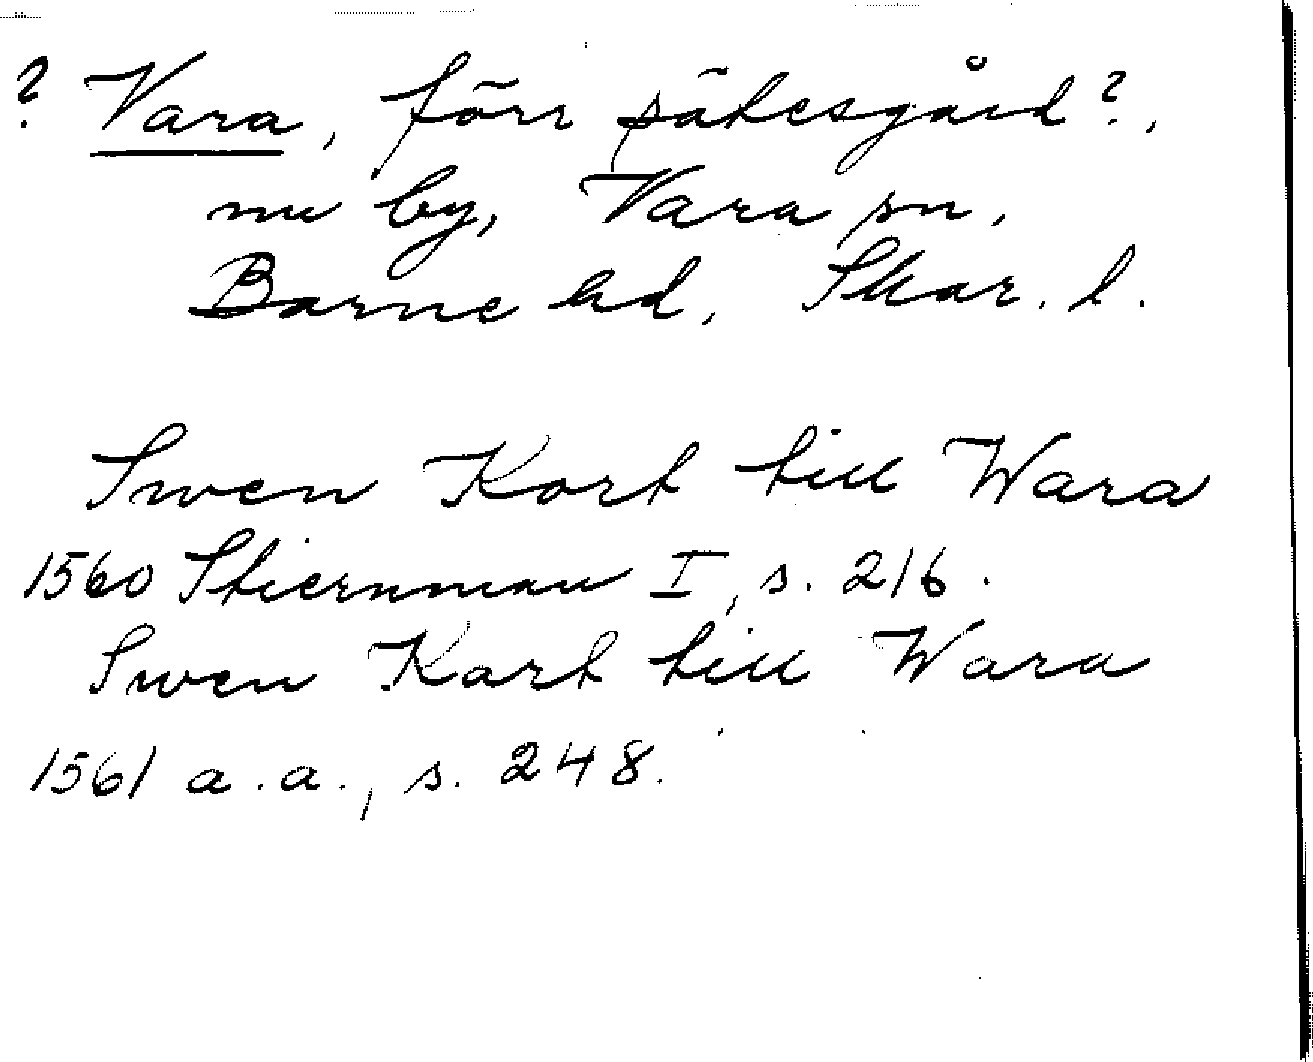 ? Vara, förr sätesgård?,
nu by, Vara sn,
Barne hd, Skar. l.
Swen Kort till Wara
1560 Stiernman I, s. 216.
Swen Kart till Wara
1561 a.a., s. 248.